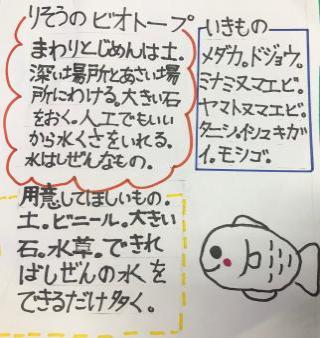 りそうのビオトープ
まわりとじめんは土.
深い場所とあさい場
所にわける.大きい石
をおく.人工でもいい
から水くさをいれる.
水はしぜんなもの.
いきもの
メダカ.ドジョウ.
ミナミヌマエビ.
ヤマトヌマエビ.
タニシ.イシュキガ
イ.モシゴ.
用意してほしいもの.
土.ビニール.大きい
石.水草.できれ
ばしぜんの水を
できるだけ多く。